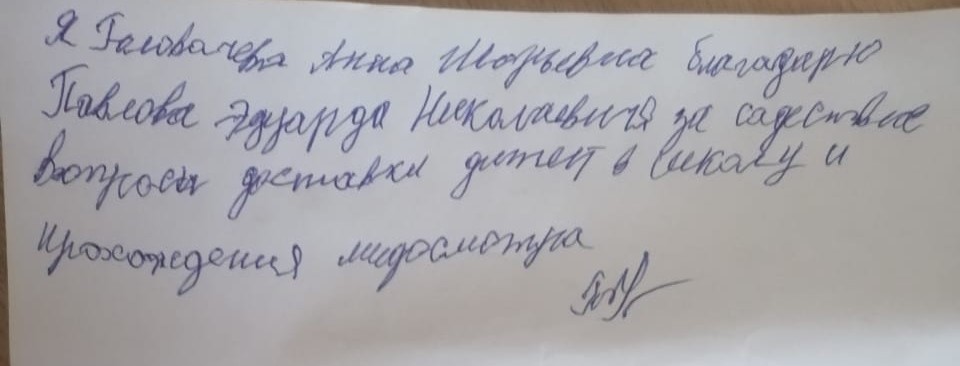 Я Головачева Анна Игорьевна благодарю
Павлова Эдуарда Николаевича за садествие
вопросы доставки дитей в школу и
прохождения мидосмотра